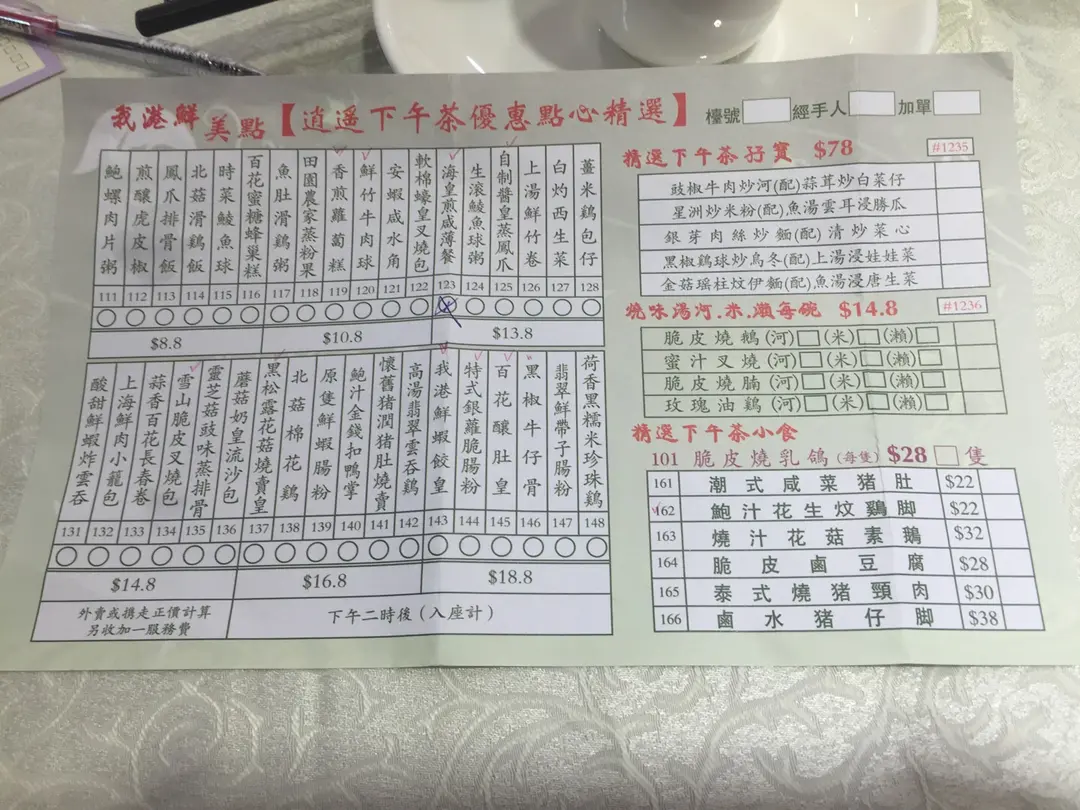 我港鮮美點【逍遥下午茶優惠點心精選】
檯號 經手人 加單
鮑螺肉片粥
煎釀虎皮椒
鳳爪排骨飯
北菇滑鷄飯
時菜鯪魚球
百花蜜糖蜂巢糕
魚肚滑鷄粥
田園農家蒸粉果
香煎蘿蔔糕
鮮竹牛肉球
安蝦咸水角
軟棉蠔皇叉燒包
海皇煎咸薄餐
生滾鯪魚球粥
自制醬皇蒸鳳爪
上湯鮮竹卷
白灼西生菜
薑米鷄包仔
111 112 113 114 115 116 117 118 119 120 121 122 123 124 125 126 127 128
$8.8 $10.8 $13.8
酸甜鮮蝦炸雲吞
上海鮮肉小籠包
蒜香百花長春卷
雪山脆皮叉燒包
靈芝菇豉味蒸排骨
蘑菇奶皇流沙包
黑松露花菇燒賣皇
北菇棉花鷄
原隻鮮蝦腸粉
鮑汁金錢扣鴨掌
懷舊猪潤猪肚燒賣
高湯翡翠雲吞鷄
我港鮮蝦餃皇
特式銀蘿脆腸粉
百花釀肚皇
黑椒牛仔骨
翡翠鮮帶子腸粉
荷香黑糯米珍珠鷄
131 132 133 134 135 136 137 138 139 140 141 142 143 144 145 146 147 148
$14.8 $16.8 $18.8
外賣或携走正價計算
另收加一服務費
下午二時後(入座計)
精選下午茶孖寶 $78 #1235
豉椒牛肉炒河(配)蒜茸炒白菜仔
星洲炒米粉(配)魚湯雲耳浸勝瓜
銀芽肉絲炒麵(配)清炒菜心
黑椒鷄球炒烏冬(配)上湯浸娃娃菜
金菇瑶柱炆伊麵(配)魚湯浸唐生菜
燒味湯河.米.瀨每碗 $14.8 #1236
脆皮燒鵝(河)(米)(瀨)
蜜汁叉燒(河)(米)(瀨)
脆皮燒腩(河)(米)(瀨)
玫瑰油鷄(河)(米)(瀨)
精選下午茶小食
101 脆皮燒乳鴿(每隻) $28 隻
161 潮式咸菜猪肚 $22
162 鮑汁花生炆鷄脚 $22
163 燒汁花菇素鵝 $32
164 脆皮鹵豆腐 $28
165 泰式燒猪頸肉 $30
166 鹵水猪仔脚 $38